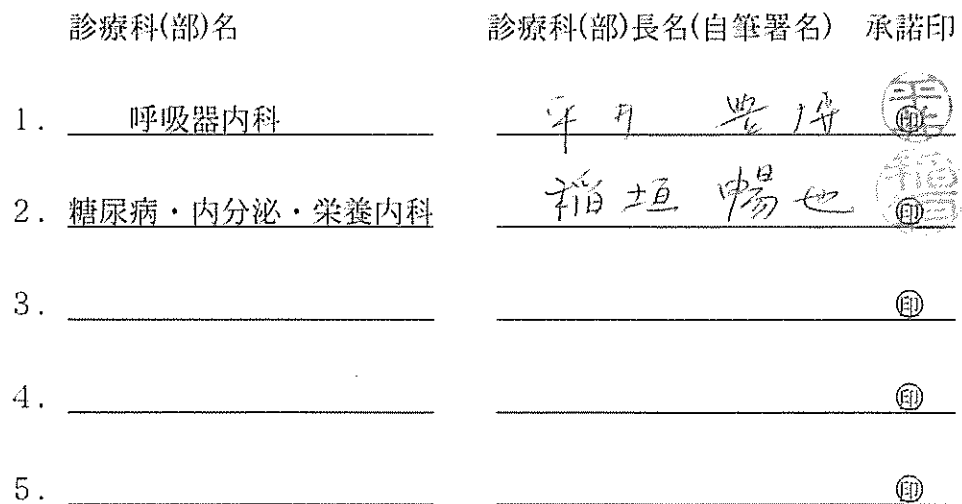 診療科(部)名 診療科(部)長名(自筆署名) 承諾印
1. 呼吸器内科 平井 豊博 印
2. 糖尿病・内分泌・栄養内科 稲垣 暢也 印
3. 印
4. 印
5. 印